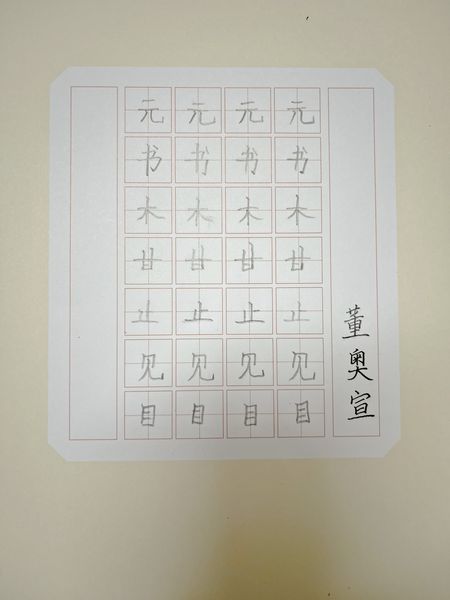 元元元元
书书书书
木木木木
甘甘甘甘
止止止止
见见见见
目目目目
董奥宣